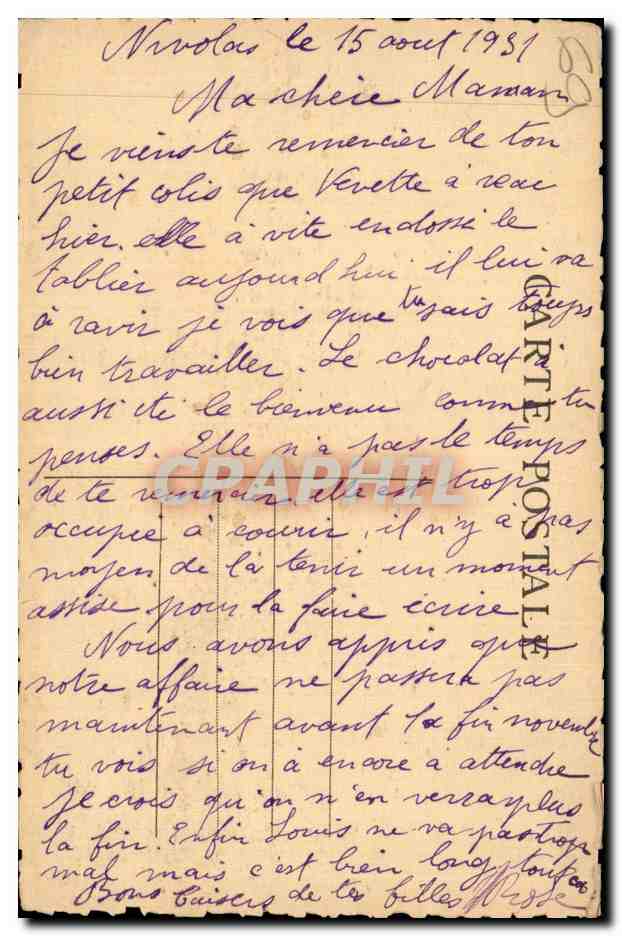 Nivolas le 15 aout 1931
Ma chère Maman
je viens te remercier de ton
petit colis que Vevette à recu
hier. elle à vite endossé le
tablier aujourd'hui il lui va
à ravir je vois que tu sais toujrs
bien travailler. Le chocolat à
aussi été le bienvenu comme tu
penses. Elle n'a pas le temps
de te remercier elle est trop
occupée à courir, il n'y à pas
moyen de la tenir un moment
assise pour la faire écrire
Nous avons appris que
notre affaire ne passera pas
maintenant avant la fin novembre
tu vois si on à encore à attendre
je crois qu'on n'en verra plus
la fin. Enfin Louis ne va pas trop
mal mais c'est bien long tout ca
Bons baisers de tes filles Rose
CARTE POSTALE
CPAPHIL